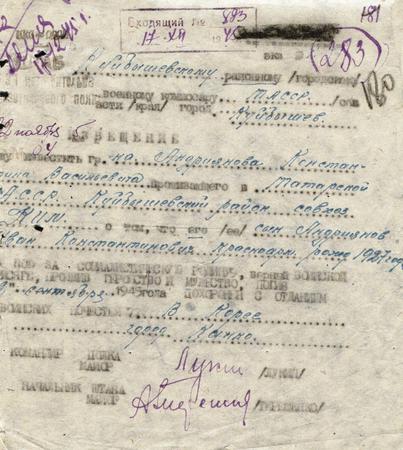 Входящий № 883
17 XII 194
181
(283)
180
17/12-45 г.
Куйбышевскому районному /городскому/
военному комиссару ТАССР /обл
асти /края/ город Куйбышев
ИЗВЕЩЕНИЕ
известить гр-на Андриянова Констан-
тина Васильевича проживающего в Татарской
АССР. Куйбышевский район совхоз
КИМ. о том, что его /ее/ сын Андриянов
Иван Константинович красноарм. рожд 1927 года
БОЮ ЗА СОЦИАЛИСТИЧЕСКУЮ РОДИНУ, верный ВОИНСКОЙ
ПРИСЯГЕ, ПРОЯВИВ ГЕРОЙСТВО И МУЖЕСТВО, ПОГИБ
сентября 1945 года ПОХОРОНЕН С ОТДАНИЕМ
ВОИНСКИХ ПОЧЕСТЕЙ В Корее
город Канко.
КОМАНДИР ПОЛКА
МАЙОР /ЛУКИН/
НАЧАЛЬНИК ШТАБА
МАЙОР /ТЕРЕЩЕНКО/